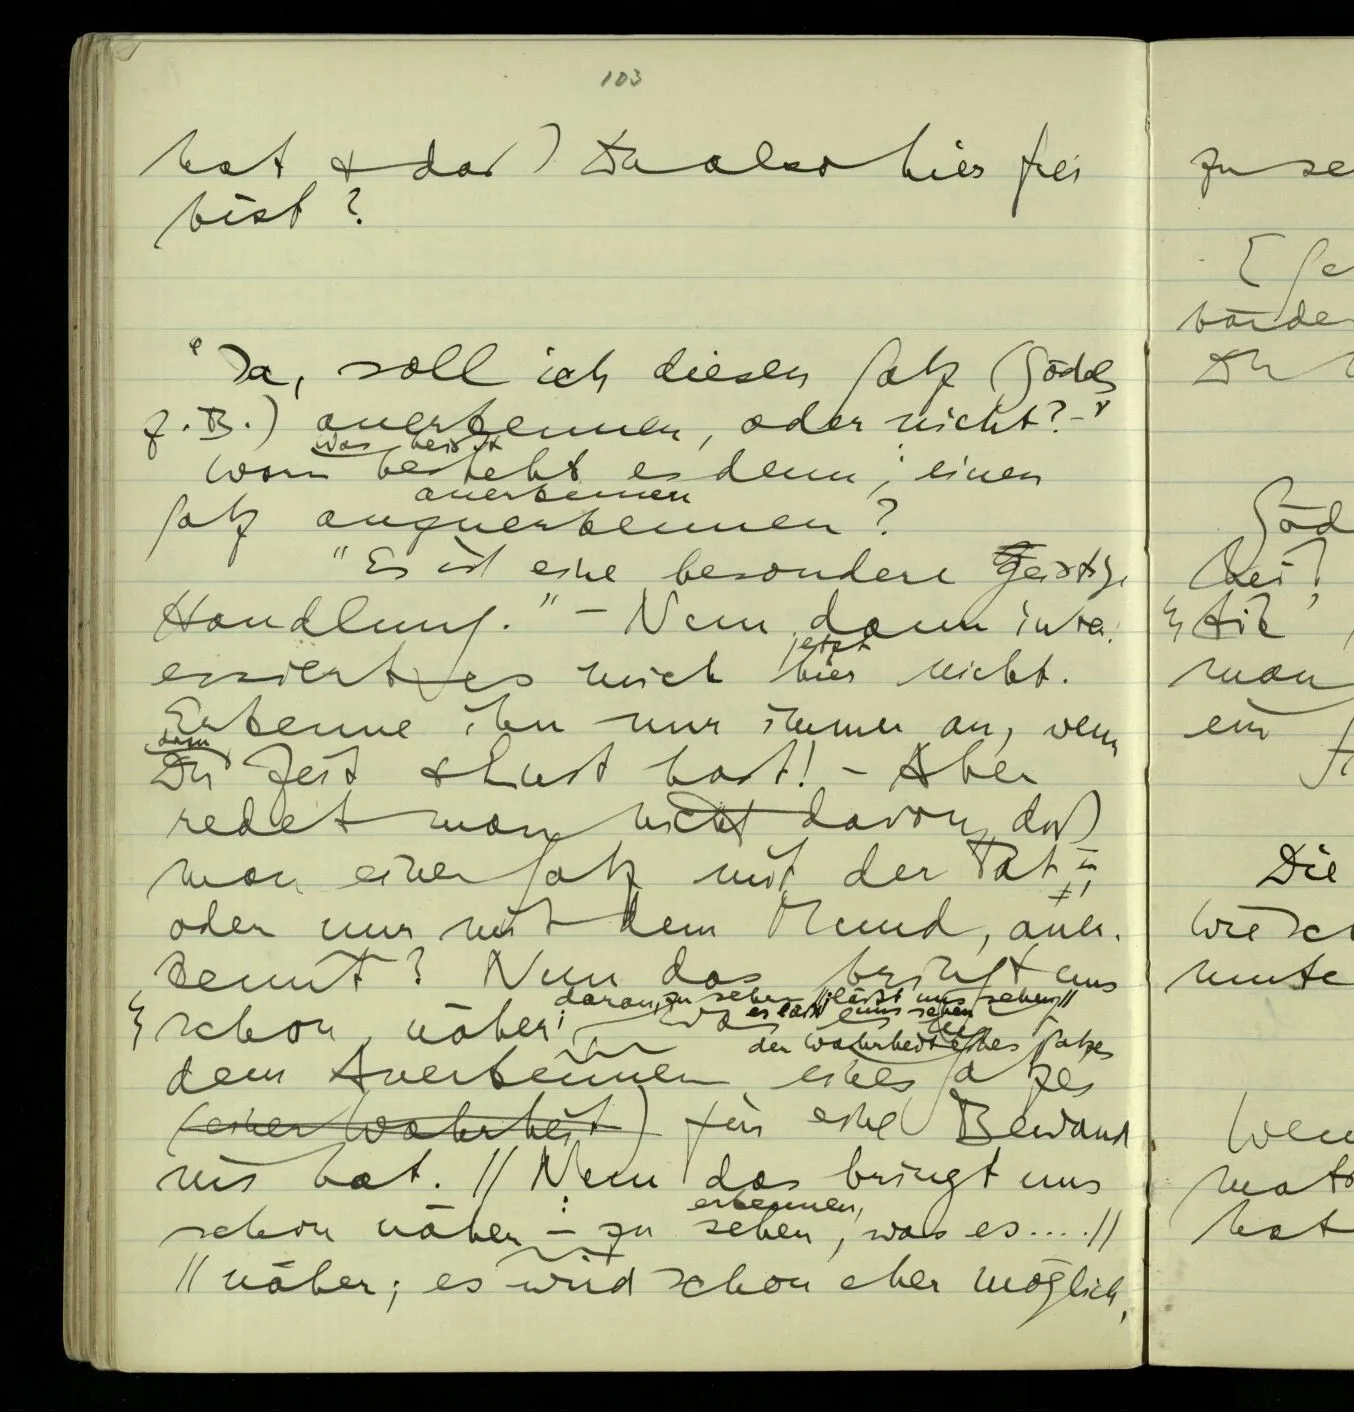 103
hat & daß Du also hier frei
bist?
"Ja, soll ich diesen Satz (Gödels
z.B.) anerkennen, oder nicht?–"
was heißt
Worin besteht es denn, einen
anerkennen
Satz anzuerkennen?
"Es ist eine besondere geistige
Handlung." – Nun dann inter-
jetzt
essiert es mich hier nicht.
Erkenne ihn nur immer an, wenn
dazu
Du Zeit & Lust hast! – Aber
redet man nicht davon, daß
man einen Satz mit der Tat
oder nur mit dem Mund, aner-
kennt? Nun das bringt uns
daran, zu sehen // läßt uns sehen //
es läßt uns sehen
schon näher:
der Wahrheit eines Satzes
dem Anerkennen eines Satzes
(einer Wahrheit) für eine Bewand-
nis hat. // Nun das bringt uns
erkennen,
schon näher – zu sehen, was es .... //
// näher; es wird schon eher möglich,
zu se
[Ge
Du
Göd
man
ein
Die